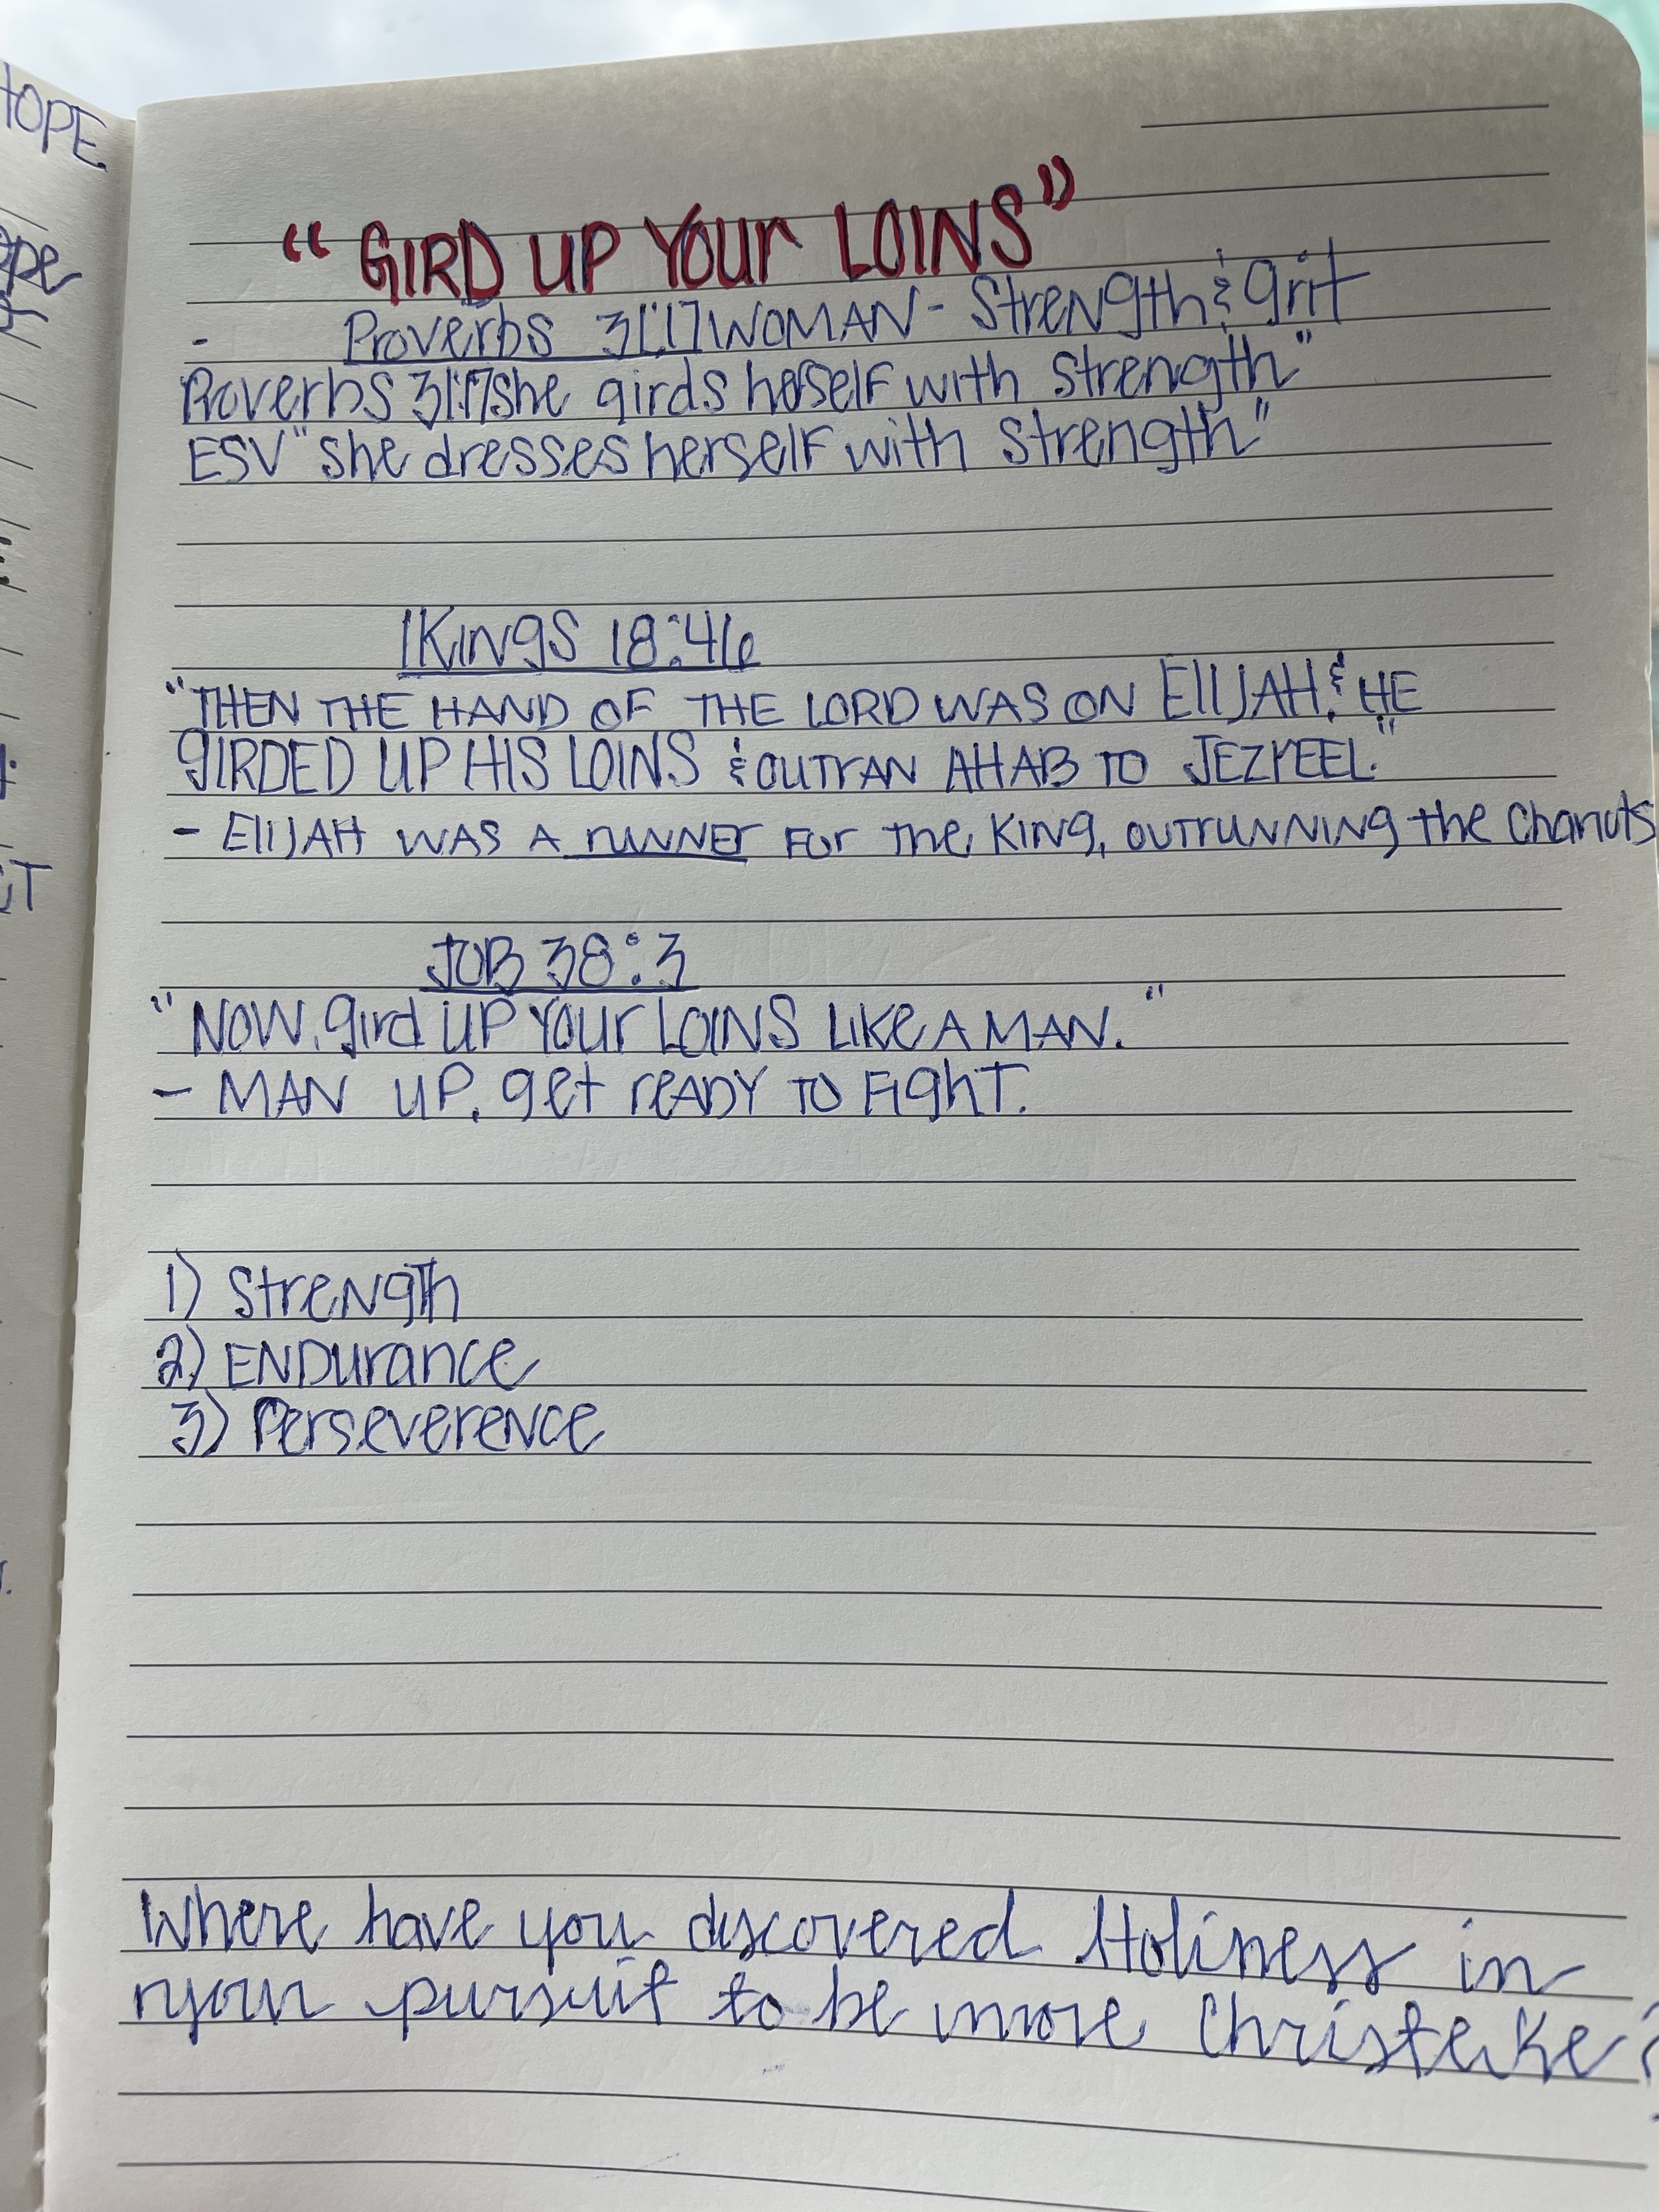 HOPE
"GIRD UP YOUR LOINS"
- Proverbs 31:17 WOMAN - Strength & grit
Proverbs 31:17 she girds herself with strength"
ESV "she dresses herself with strength"
1 Kings 18:46
"THEN THE HAND OF THE LORD WAS ON ELIJAH & HE
GIRDED UP HIS LOINS & OUTRAN AHAB TO JEZREEL."
- ELIJAH WAS A runner For the King, outrunning the Chariots
JOB 38:3
"NOW, gird UP YOUR LOINS LIKE A MAN."
- MAN UP, get reADY TO FighT.
1) Strength
2) ENDurance
3) Perseverence
Where have you discovered Holiness in
your pursuit to be more Christlike?